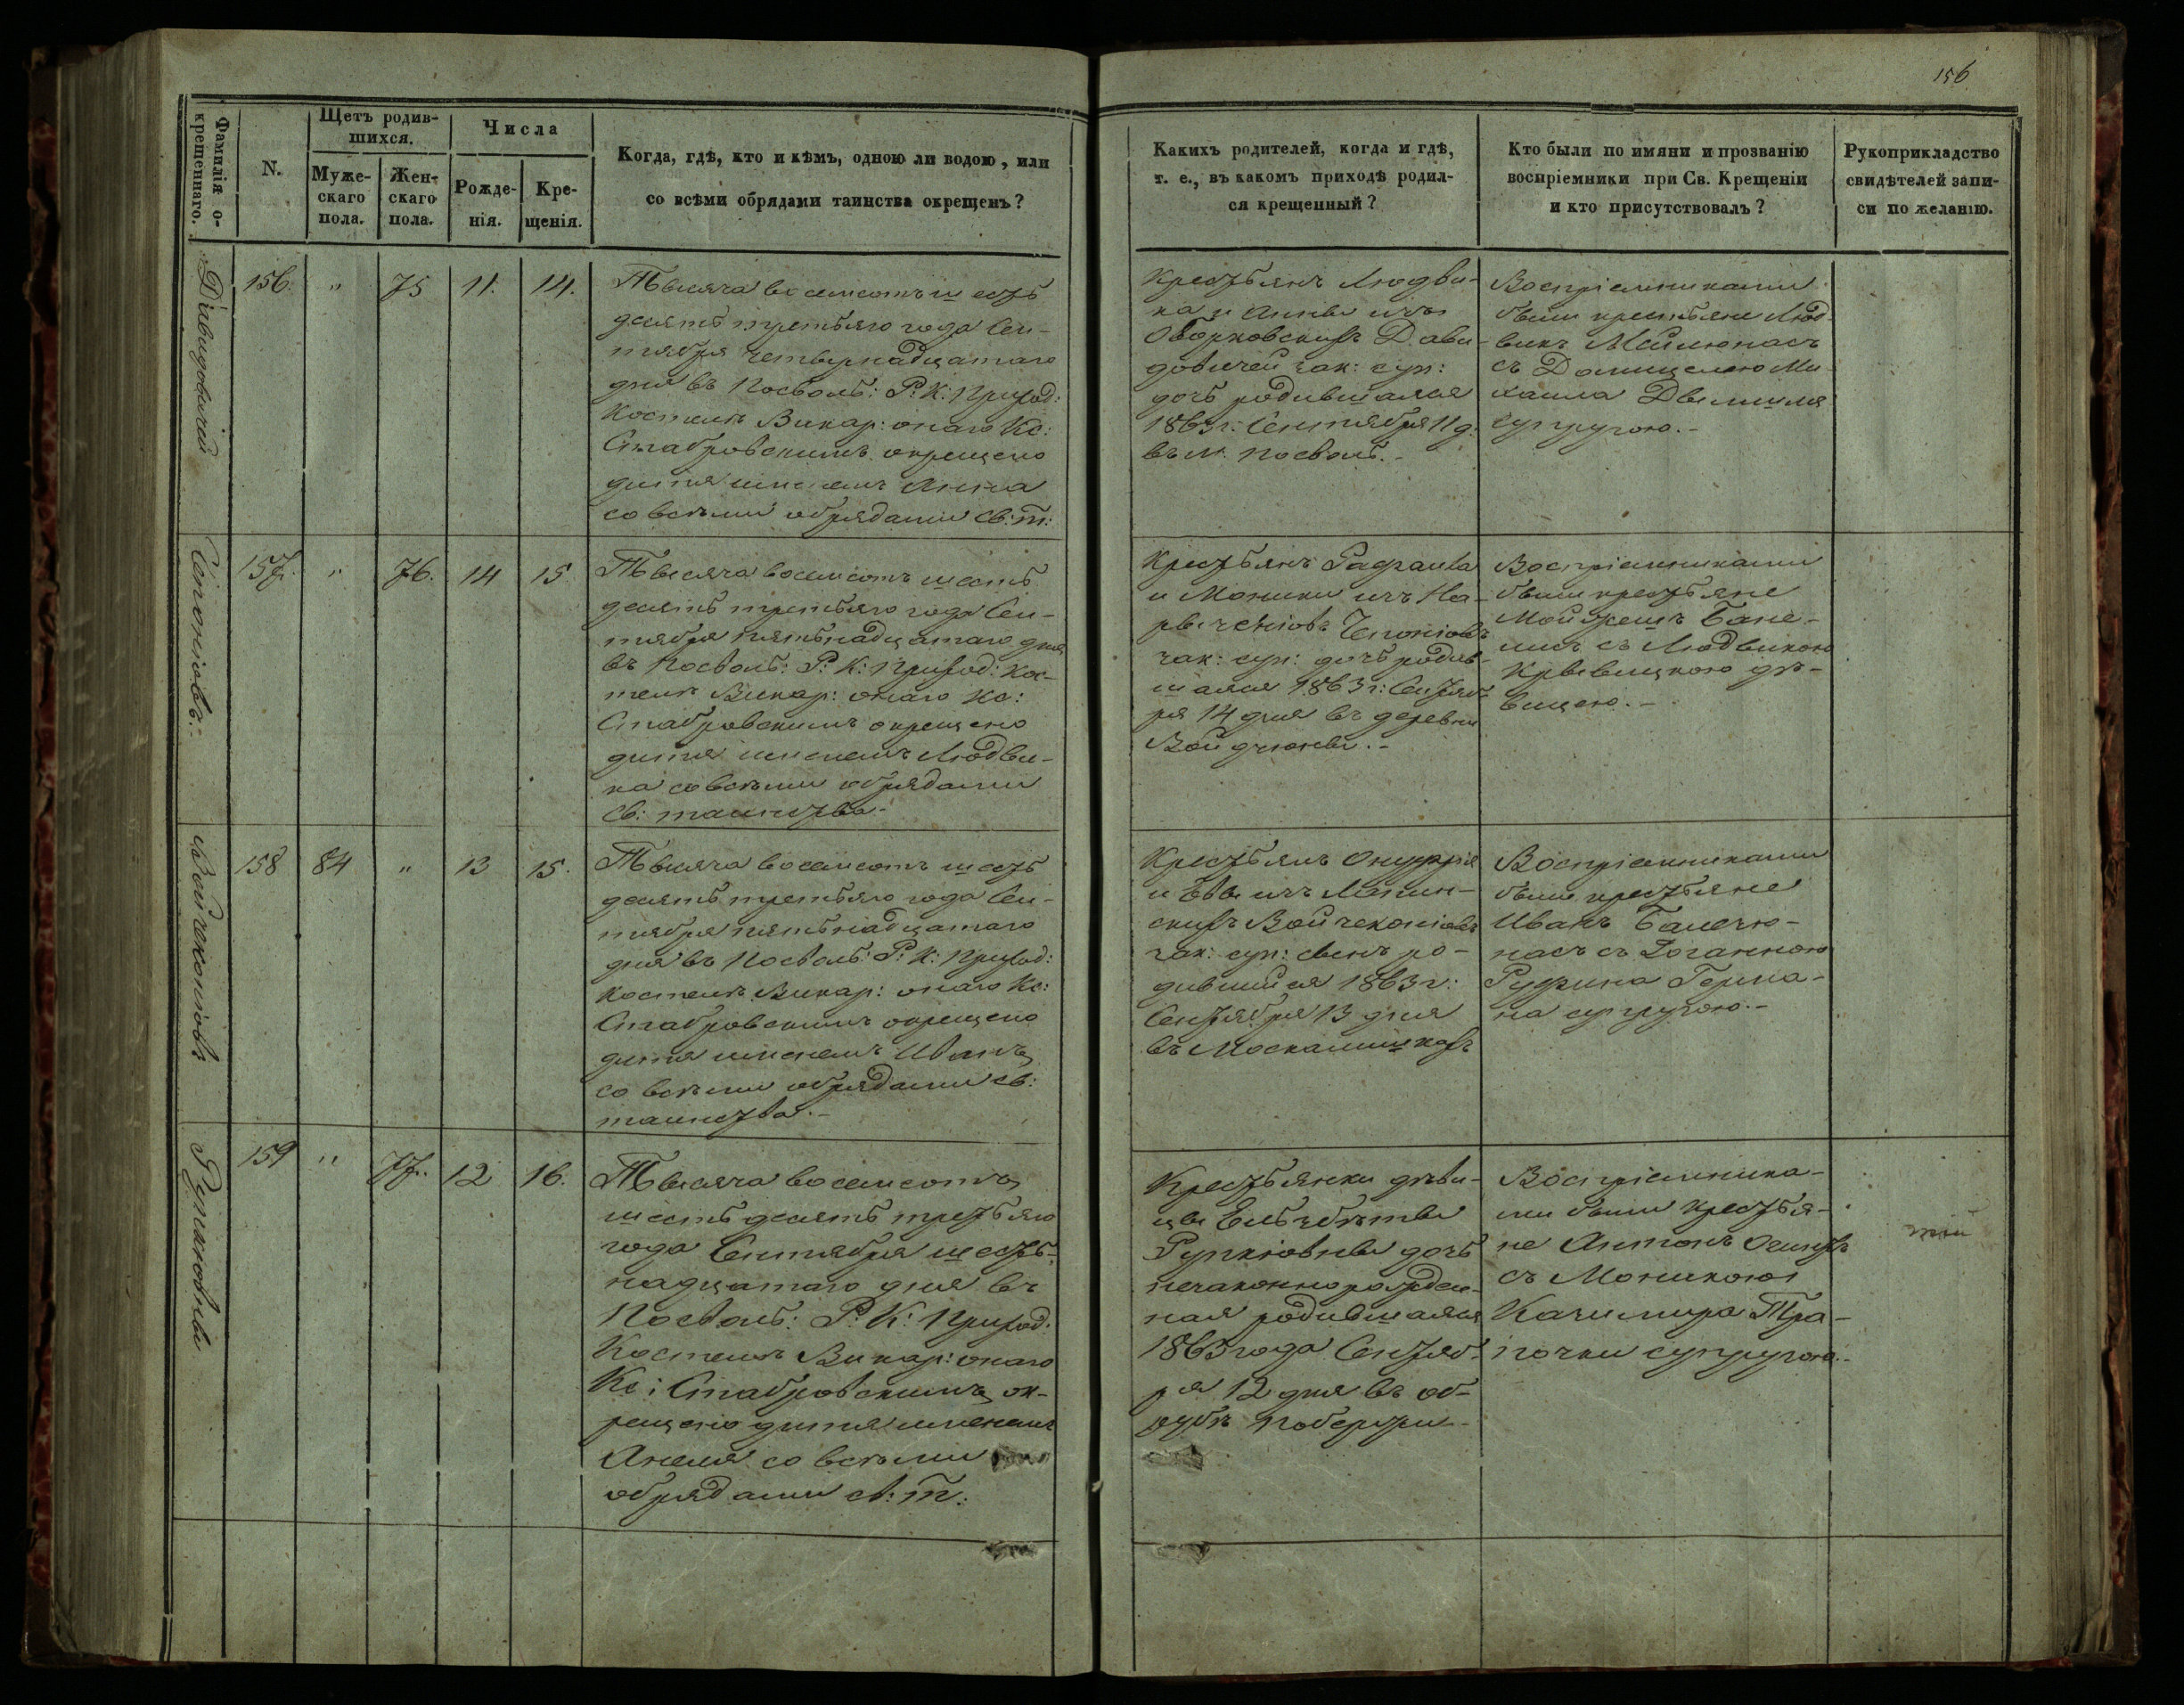 156
Фамилія о-
крещеннаго.
N.
Щетъ родив-
шихся.
Муже-
скаго
пола.
Жен-
скаго
пола.
Числа
Рожде-
нія.
Кре-
щенія.
Когда, гдѣ, кто и кѣмъ, одною ли водою, или
со всѣми обрядами таинства окрещенъ?
Какихъ родителей, когда и гдѣ,
т. е., въ какомъ приходѣ родил-
ся крещенный?
Кто были по имяни и прозванію
воспріемники при Св. Крещеніи
и кто присутствовалъ?
Рукоприкладство
свидѣтелей запи-
си по желанію.
Давидовичей
156.
"
75
11.
14.
Тысяча восемсотъ шесть
десятъ третьяго года Сен-
тября четвернадцатаго
дня въ Посволь: Р: К: Приход:
Костелѣ Викар: онаго Кс:
Стабровскимъ окрещено
дитя именемъ Анна
со всѣми обрядами Св: т:
Крестьянъ Людви-
ка и Анны изъ
Дави-
довичей зак: суп:
дочь родившаяся
1863 г: Сентября 11 д:
въ м. Посволь.-
Воспріемниками
были крестьяне Люд-
викъ
съ Домицелею Ми-
хаила
супругою.-
157.
"
76.
14
15
Тысяча восемсотъ шесть
десятъ третьяго года Сен-
тября пятьнадцатаго дня
въ Посволь: Р: К: Приход: Кос-
телѣ Викар: онаго Кс:
Стабровскимъ окрещено
дитя именемъ Людви-
ка со всѣми обрядами
Св: таинства.-
Крестьянъ Рафаила
и Моники изъ На-
зак: суп: дочь родив-
шаяся 1863 г: Сентяб-
ря 14 дня въ деревни
Воспріемниками
были крестьяне
съ Людвикою
дѣ-
вицею.-
Войчеконіовъ
158
84
"
13
15.
Тысяча восемсотъ шесть
десятъ третьяго года Сен-
тября пятьнадцатаго
дня въ Посволь: Р: К: Приход:
Костелѣ Викар: онаго Кс:
Стабровскимъ окрещено
дитя именемъ Иванъ
со всѣми обрядами св:
таинства.-
Крестьянъ Онуфрія
и Евы изъ
Войчеконіовъ
зак: суп: сынъ ро-
дившийся 1863 г:
Сентября 13 дня
въ Москалишкахъ
Воспріемниками
были крестьяне
Иванъ
насъ съ Іоганною
Руфина Герма-
на супругою.-
Рупковны
159
"
77.
12
16.
Тысяча восемсотъ
шесть десятъ третьяго
года Сентября шесть-
надцатаго дня въ
Посволь: Р: К: Приход:
Костелѣ Викар: онаго
Кс: Стабровскимъ ок-
рещено дитя именемъ
Анеля со всѣми
обрядами св: т:
Крестьянки дѣви-
цы Ельзбѣты
дочь
незаконнорожден-
ная родившаяся
1863 года Сентяб-
ря 12 дня въ об-
рубѣ
Воспріемника-
ми были крестья-
не Антонъ
съ Моникою
Казимира Тра-
супругою.-